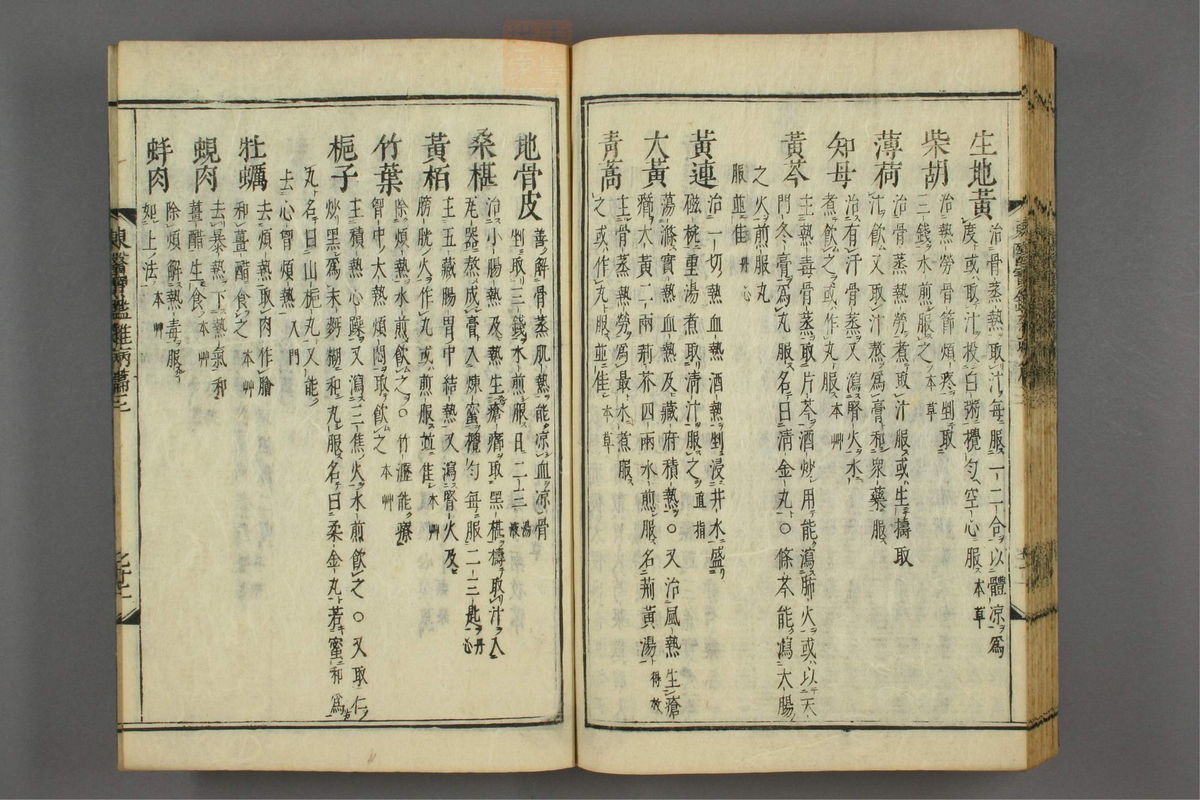 生地黃
治骨蒸熱取汁每服一二合以體凉爲
度或取汁投白粥攪勻空心服本草
柴胡
治熱勞骨節煩疼剉取
三錢水煎服之本草
薄荷
治骨蒸熱勞煮取汁服或生擣取
汁飮又取汁熬爲膏和衆藥服
知母
治有汗骨蒸又瀉腎火水
煮飮之或作丸服本艸
黃芩
主熱毒骨蒸又片芩酒炒用能瀉肺火或以天
門冬膏爲丸服名曰淸金丸○條芩能瀉大腸
之火煎服丸
服並佳丹心
黃連
治一切熱血熱酒熱剉浸井水盛
磁椀重湯煮取淸汁服之直指
大黃
蕩滌實熱及藏府積熱○又治風熱生瘡
大黃二兩荊芥四兩水煎服名荊黃湯得效
靑蒿
主骨蒸熱勞爲最水煮服
之或作丸服並佳本草
地骨皮
善解骨蒸肌熱能凉血凉骨
剉取三錢水煎服日二三湯液
桑椹
治小腸熱及熱生瘡癤取黑椹擣取汁入
磁器熬成膏入煉蜜攪勻每服二三匙丹心
黃栢
主五藏腸胃中結熱又瀉腎火及
膀胱火作丸或煎服並佳本艸
竹葉
除煩熱水煎飮之○竹瀝能療
胷中大熱煩悶取飮之本艸
梔子
主積熱心躁又瀉三焦火水煎飮之○又取仁
炒黑爲末麪糊和丸服名曰柔金丸若蜜和爲
丸名曰山梔丸又能
去心胷煩熱入門
牡蠣
去煩熱取肉作膾
和薑醋食之本艸
蜆肉
去暴熱下熱氣和
薑醋生食本艸
蚌肉
除煩解熱毒服
如上法本艸
東醫寶鑑雜病篇